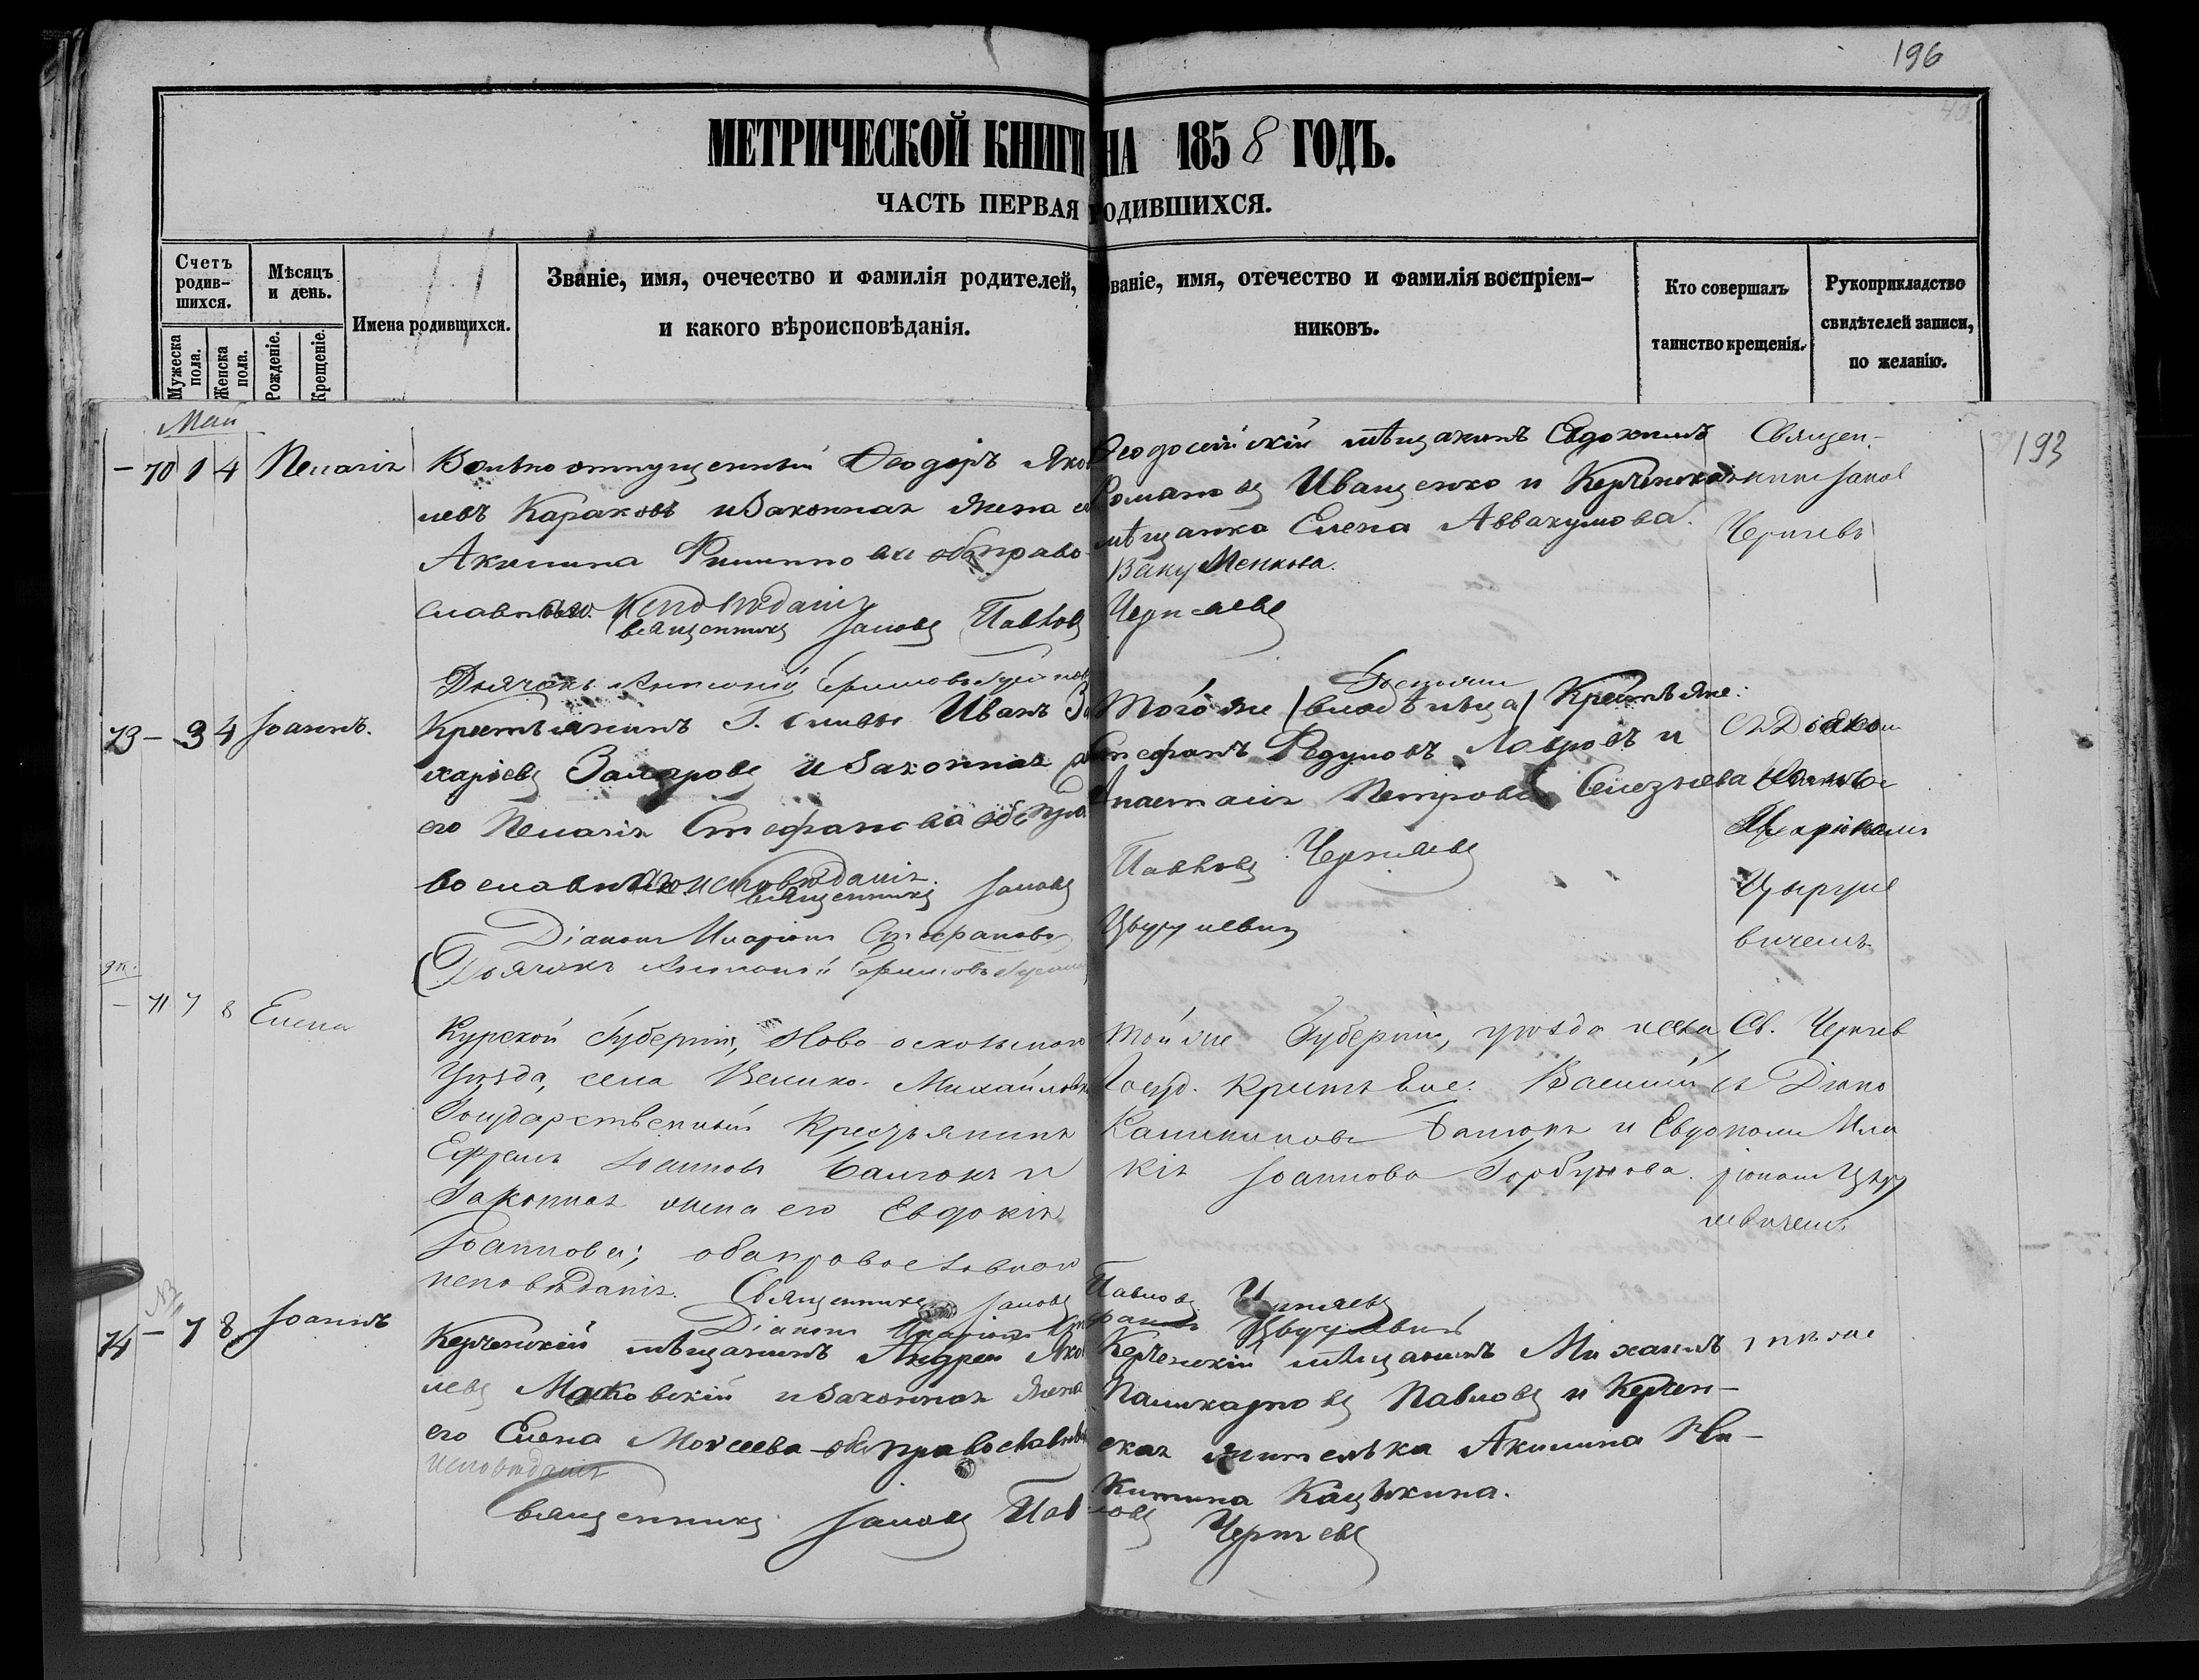 196
МЕТРИЧЕСКОЙ КНИГИ НА 1858 ГОДЪ.
ЧАСТЬ ПЕРВАЯ РОДИВШИХСЯ.
Счетъ родив-
шихся.
Мужеска пола.
Женска пола.
Мѣсяцъ и день.
Рожденіе.
Крещеніе.
Имена родившихся.
Званіе, имя, очечество и фамилія родителей,
и какого вѣроисповѣданія.
званіе, имя, отечество и фамилія воспріем-
никовъ.
Кто совершалъ
таинство крещенія.
Рукоприкладство
свидѣтелей записи,
по желанію.
Май
193
- 70 1 4 Пелагія
Вольно отпущенный Ѳеодоръ Яков
левъ Караковъ и Законная жена его
Акилина Филиппова оба право
славнаго исповѣданія
священникъ Іаковъ Павловъ Черняевъ
Дьячекъ Антоній Ефимовъ
Ѳеодосійскій мѣщанинъ Евдокимъ
Романовъ Иващенко и Керченская
мѣщанка Елена Аввакумова
Менкова.
Священ-
никъ Іаков
Черняевъ
73 - 3 4 Іоаннъ.
Крестьянинъ Г. Иванъ За
харіевъ Захаровъ и Законная
его Пелагія Стефанова оба пра
вославнаго исповѣданія.
священникъ Іаковъ Павловъ Черняевъ
Діаконъ Иларіонъ Стефановъ Цыгулевичъ
Дьячокъ Антоній Ефимовъ
Того же владѣльца Крестьяне:
Стефанъ Федуловъ Лавровъ и
Анастасія Петрова Селезнева
съ Діакономъ
Иларіономъ
Цыгуле
вичемъ
- 71 7 8 Елена
Курской Губерніи, Ново-оскольскаго
Уѣзда, села Велико-Михайловки
Государственный Крестьянинъ
Ефремъ Іоанновъ Балюкъ и
Законная жена его Евдокія
Іоаннова; оба православнаго
исповѣданія. Священникъ Іаковъ Павловъ Черняевъ
Діаконъ Иларіонъ Стефановъ Цыгулевичъ
Той же Губерніи, уѣзда и села
Госуд. Крестьяне: Василій
Балюкъ и Евдо
кія Іоаннова Горбунова.
Св. Черняев
съ Діако
номъ Ила
ріономъ Цыгу
левичемъ
74 - 7 8 Іоаннъ
Керченскій мѣщанинъ Андрей Яков
левъ Маковскій и Законная жена
его Елена Моисеева оба православнаго
исповѣданія
священникъ Іаковъ Павловъ Черняевъ
Керченскій мѣщанинъ Михаилъ
Павловъ и Керчен-
ская жителька Акилина Ни-
китина Кацыкина.